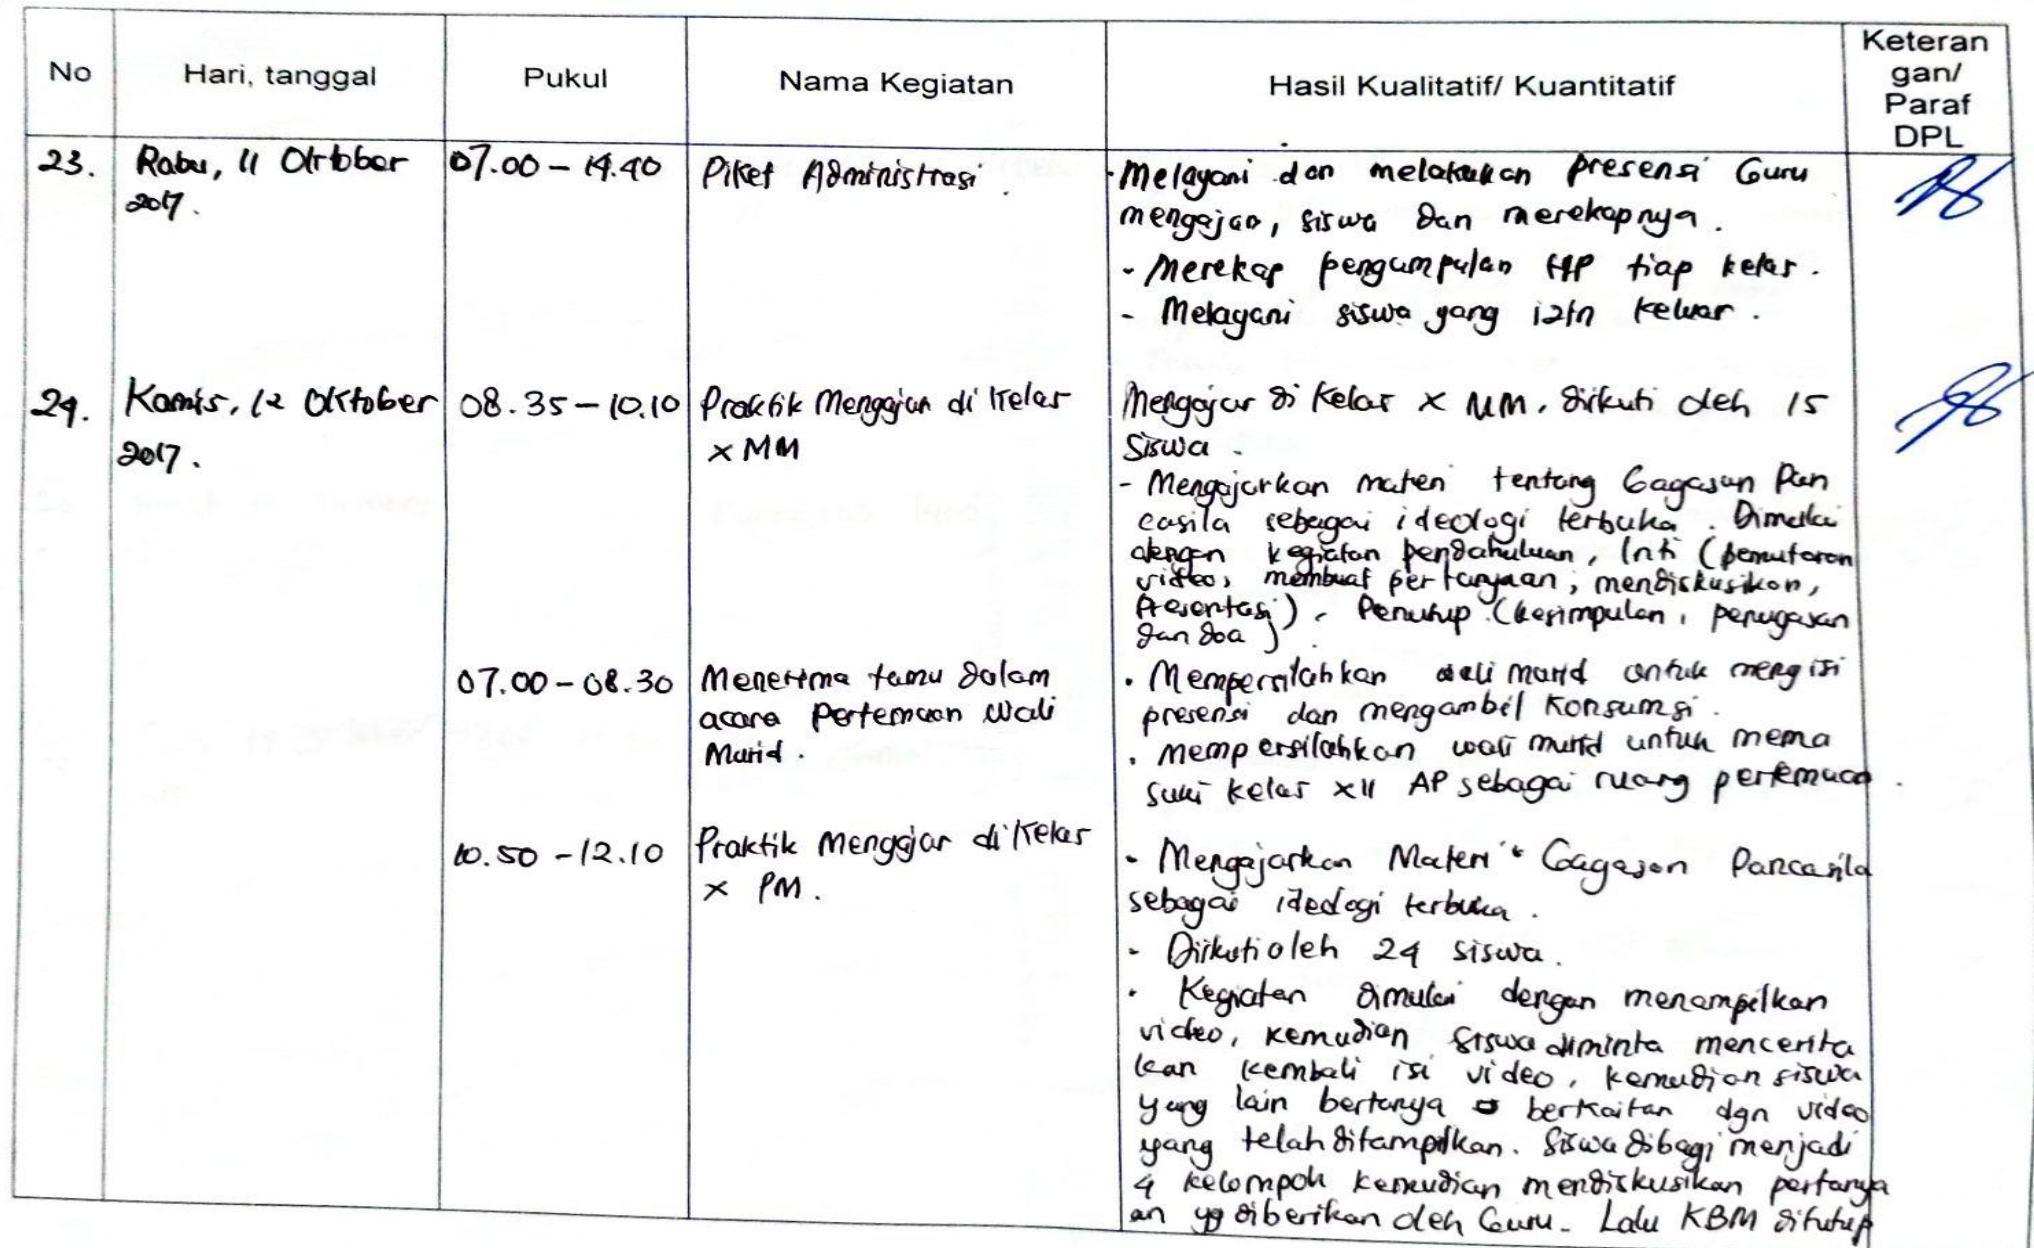 No Hari, tanggal Pukul Nama Kegiatan Hasil Kualitatif/ Kuantitatif Keteran
gan/
Paraf
DPL
23. Rabu, 11 Oktober 07.00 - 14.40 Piket Administrasi . - Melayani dan melakukan presensi Guru
2017. mengajar, siswa dan merekapnya .
- Merekap pengumpulan HP tiap kelas .
- Melayani siswa yang izin keluar .
24. Kamis, 12 Oktober 08.35 - 10.10 Praktik Mengajar di Kelas Mengajar di Kelas X MM. diikuti oleh 15
2017. X MM siswa .
- Mengajarkan materi tentang Gagasan Pan
casila sebagai ideologi terbuka . Dimulai
dengan kegiatan pendahuluan, Inti (pemutaran
video, membuat pertanyaan, mendiskusikan,
Presentasi) , Penutup (kesimpulan, penugasan
dan doa )
07.00 - 08.30 Menerima tamu dalam . Mempersilahkan wali murid untuk mengisi
acara Pertemuan Wali presensi dan mengambil Konsumsi .
Murid . . mempersilahkan wali murid untuk mema
suki kelas XII AP sebagai ruang pertemuan .
10.50 - 12.10 Praktik Mengajar di Kelas - Mengajarkan Materi " Gagasan Pancasila
X PM. sebagai ideologi terbuka .
- Diikuti oleh 24 siswa .
. Kegiatan dimulai dengan menampilkan
video, kemudian siswa diminta mencerita
kan kembali isi video, kemudian siswa
yang lain bertanya berkaitan dgn video
yang telah ditampilkan. Siswa dibagi menjadi
4 kelompok kemudian mendiskusikan pertanya
an yg diberikan oleh Guru. Lalu KBM ditutup